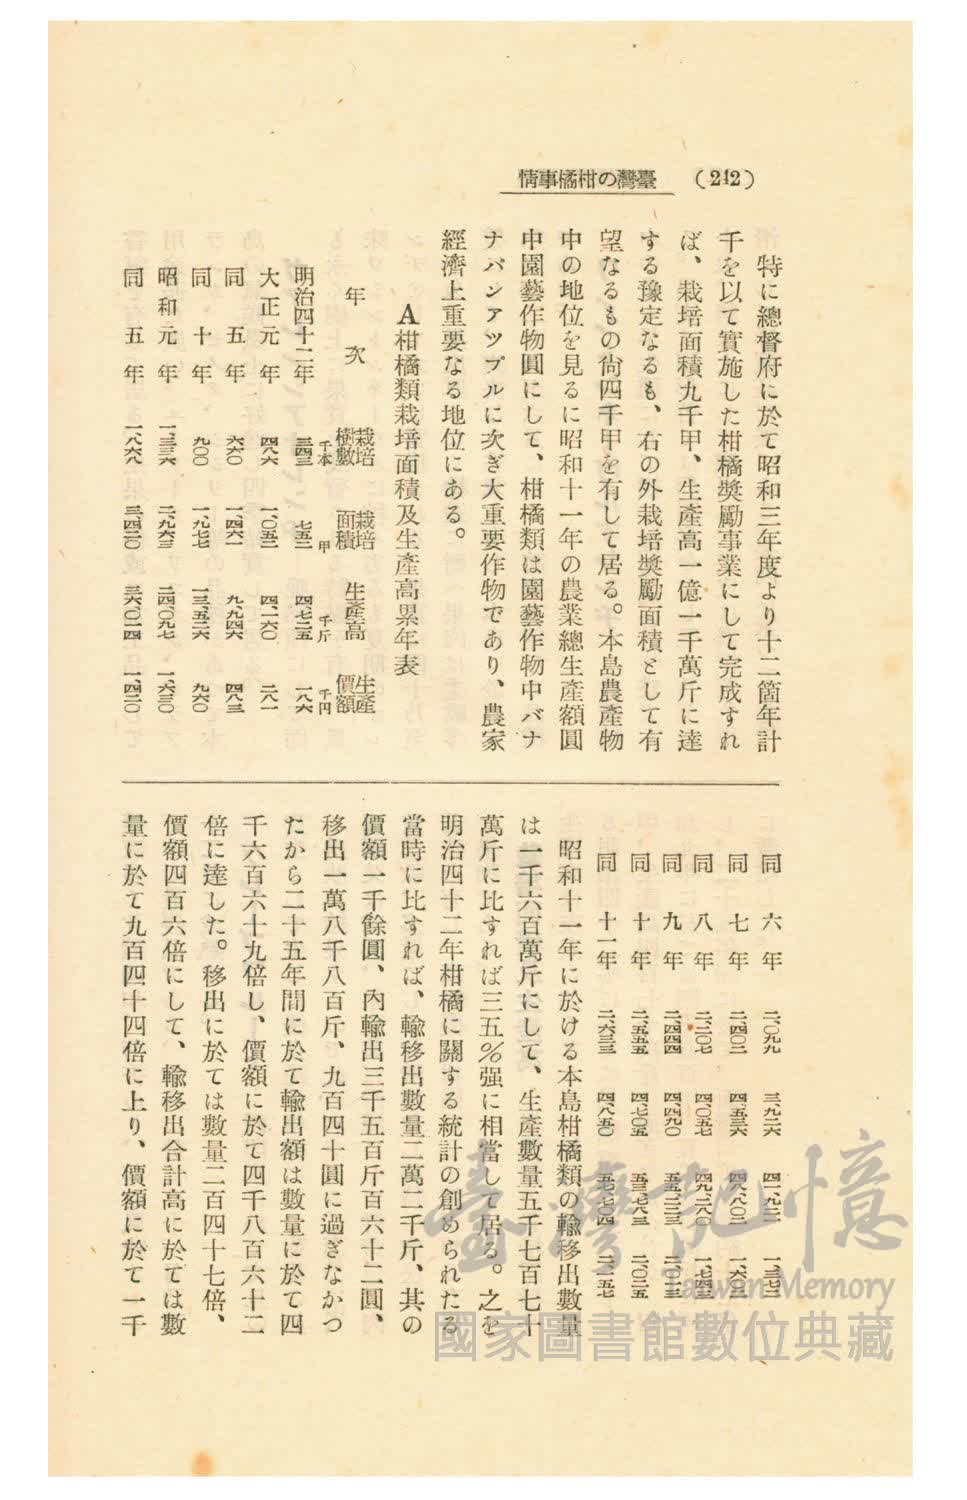 (242) 臺灣の柑橘事情
特に總督府に於て昭和三年度より十二箇年計
千を以て實施した柑橘奬勵事業にして完成すれ
ば、栽培面積九千甲、生產高一億一千萬斤に達
する豫定なるも、右の外栽培奬勵面積として有
望なるもの尙四千甲を有して居る。本島農產物
中の地位を見るに昭和十一年の農業總生產額圓
中園藝作物圓にして、柑橘類は園藝作物中バナ
ナパンアツプルに次ぎ大重要作物であり、農家
經濟上重要なる地位にある。
A柑橘類栽培面積及生產高累年表
年次 栽培樹數 栽培面積 生產高 生產價額
千本 甲 千斤 千円
明治四十二年 三四三 七五二 四、七二五 一八六
大正元年 四八六 一、〇五三 四、一六〇 二八一
同五年 六六〇 一、四六一 九、九四六 四八三
同十年 九〇〇 一、九七七 一三、五二六 九六〇
昭和元年 一、三三六 二、九六三 二四、〇九七 一、六三〇
同五年 一、八六八 三、四二〇 三六、〇一四 一、四二〇
同六年 二、〇九九 三、九二六 四一、九二二 一、三七二
同七年 二、四〇二 四、五三六 四八、八〇二 一、六〇三
同八年 二、二〇七 四、〇五七 四九、二八〇 一、七四三
同九年 二、四四四 四、四九〇 五五、二二三 二、〇二三
同十年 二、五五五 四、七〇五 五三、七八三 二、〇二五
同十一年 二、六三三 四、八五〇 五七、七〇四 二、二五七
昭和十一年に於ける本島柑橘類の輸移出數量
は一千六百萬斤にして、生產數量五千七百七十
萬斤に比すれば三五%强に相當して居る。之を
明治四十二年柑橘に關する統計の創められたる
當時に比すれば、輸移出數量二萬二千斤、其の
價額一千餘圓、內輸出三千五百斤百六十二圓、
移出一萬八千八百斤、九百四十圓に過ぎなかつ
たから二十五年間に於て輸出額は數量に於て四
千六百六十九倍し、價額に於て四千八百六十二
倍に達した。移出に於ては數量二百四十七倍、
價額四百六倍にして、輸移出合計高に於ては數
量に於て九百四十四倍に上り、價額に於て一千
臺灣記憶
Taiwan Memory
國家圖書館數位典藏